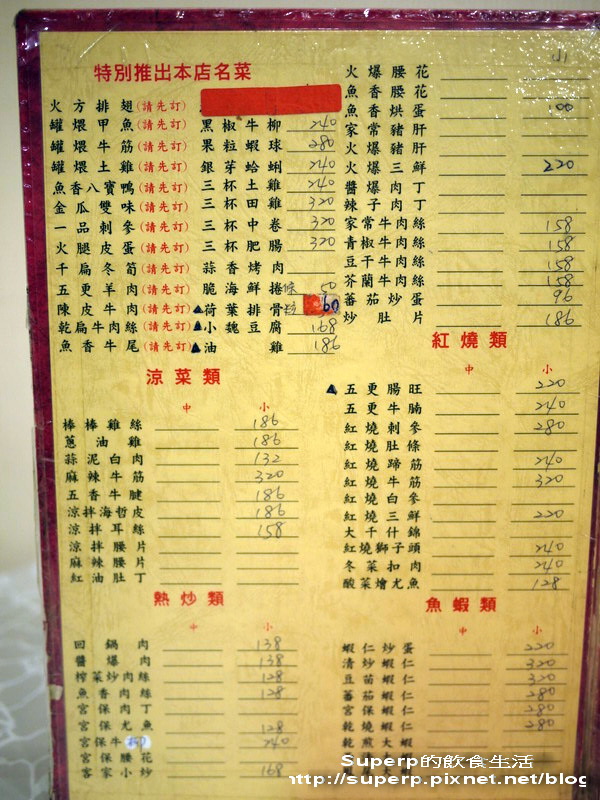 特別推出本店名菜
火方排翅(請先訂)
罐煨甲魚(請先訂)
罐煨牛筋(請先訂)
罐煨土雞(請先訂)
魚香八寶鴨(請先訂)
金瓜雙味(請先訂)
一品刺參(請先訂)
火腿皮蛋(請先訂)
千扁冬筍(請先訂)
五更羊肉(請先訂)
陳皮牛肉(請先訂)
乾扁牛肉絲(請先訂)
魚香牛尾(請先訂)
黑椒牛柳 240
果粒蝦球 280
銀芽蛤蜊 240
三杯土雞 240
三杯田雞 320
三杯中卷 320
三杯肥腸 320
蒜香烤肉
脆海鮮捲條 50
▲荷葉排骨 60
▲小魏豆腐 168
▲油雞 186
涼菜類
中 小
棒棒雞絲 186
蔥油雞 186
蒜泥白肉 132
麻辣牛筋 320
五香牛腱 186
涼拌海哲皮 186
涼拌耳絲 158
涼拌腰片
麻辣腰片
紅油肚丁
熱炒類
中 小
回鍋肉 138
醬爆肉 138
榨菜炒肉絲 128
魚香肉絲 128
宮保肉丁
宮保尤魚 128
宮保牛柳 240
宮保腰花
客家小炒 168
小
火爆腰花
魚香腰花
魚香烘蛋 100
家常豬肝
火爆豬肝
火爆三鮮 220
醬爆肉丁
辣子肉丁
家常牛肉絲 158
青椒牛肉絲 158
豆干牛肉絲 158
芥蘭牛肉絲 158
蕃茄炒蛋 96
炒肚片 186
紅燒類
中 小
▲五更腸旺 220
五更牛腩 240
紅燒刺參 280
紅燒肚條
紅燒蹄筋 240
紅燒牛筋 320
紅燒白參
紅燒三鮮 220
大千什錦
紅燒獅子頭 240
冬菜扣肉 240
酸菜燴尤魚 128
魚蝦類
中 小
蝦仁炒蛋 220
清炒蝦仁 320
豆苗蝦仁 320
蕃茄蝦仁 280
宮保蝦仁 280
乾燒蝦仁 280
乾煎大蝦
Superp的飲食生活
http://superp.pixnet.net/blog